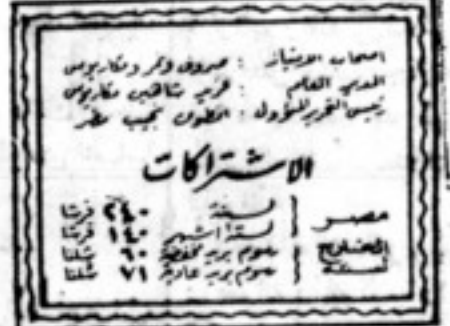 اصحاب الامتياز : صروف ونمر ومكاريوس
المدير العام : فريد شاهين مكاريوس
رئيس التحرير المسؤول : انطون نجيب مطر
الاشتراكات
مصر لسنة ٢٤٠ قرشا
لستة اشهر ١٤٠ قرشا
للخارج لسنة رسوم بريد مخفضة ٦٠ شلنا
رسوم بريد عادية ٧١ شلنا